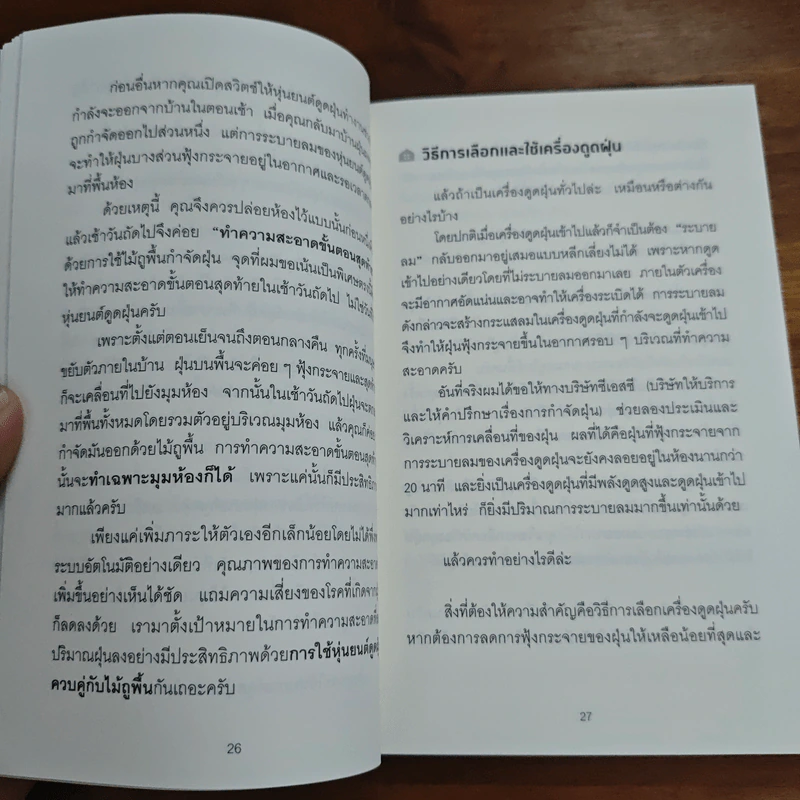 ก่อนอื่นหากคุณเปิดสวิตช์ให้หุ่นยนต์ดูดฝุ่นทำงาน
กำลังจะออกจากบ้านในตอนเช้า เมื่อคุณกลับมาบ้าน
ถูกกำจัดออกไปส่วนหนึ่ง แต่การระบายลมของหุ่นยนต์
จะทำให้ฝุ่นบางส่วนฟุ้งกระจายอยู่ในอากาศและรอเวลา
มาที่พื้นห้อง
ด้วยเหตุนี้ คุณจึงควรปล่อยห้องไว้แบบนั้นก่อน
แล้วเช้าวันถัดไปจึงค่อย “ทำความสะอาดขั้นตอนสุดท้าย
ด้วยการใช้ไม้ถูพื้นกำจัดฝุ่น จุดที่ผมขอเน้นเป็นพิเศษ
ให้ทำความสะอาดขั้นตอนสุดท้ายในเช้าวันถัดไป ไม่ใช่
หุ่นยนต์ดูดฝุ่นครับ
เพราะตั้งแต่ตอนเย็นจนถึงตอนกลางคืน ทุกครั้งที่
ขยับตัวภายในบ้าน ฝุ่นบนพื้นจะค่อย ๆ ฟุ้งกระจาย
ก็จะเคลื่อนที่ไปยังมุมห้อง จากนั้นในเช้าวันถัดไปฝุ่น
มาที่พื้นทั้งหมดโดยรวมตัวอยู่บริเวณมุมห้อง แล้วคุณก็
กำจัดมันออกด้วยไม้ถูพื้น การทำความสะอาดขั้นตอนสุดท้าย
นั้นจะทำเฉพาะมุมห้องก็ได้ เพราะแค่นั้นก็มีประสิทธิภาพ
มากแล้วครับ
เพียงแค่เพิ่มภาระให้ตัวเองอีกเล็กน้อยโดยไม่ได้พึ่ง
ระบบอัตโนมัติอย่างเดียว คุณภาพของการทำความสะอาด
เพิ่มขึ้นอย่างเห็นได้ชัด แถมความเสี่ยงของโรคที่เกิดจาก
ก็ลดลงด้วย เรามาตั้งเป้าหมายในการทำความสะอาด
ปริมาณฝุ่นลงอย่างมีประสิทธิภาพด้วยการใช้หุ่นยนต์ดูดฝุ่น
ควบคู่กับไม้ถูพื้นกันเถอะครับ
26
วิธีการเลือกและใช้เครื่องดูดฝุ่น
แล้วถ้าเป็นเครื่องดูดฝุ่นทั่วไปล่ะ เหมือนหรือต่างกัน
อย่างไรบ้าง
โดยปกติเมื่อเครื่องดูดฝุ่นเข้าไปแล้วก็จำเป็นต้อง “ระบาย
ลม” กลับออกมาอยู่เสมอแบบหลีกเลี่ยงไม่ได้ เพราะหากดูด
เข้าไปอย่างเดียวโดยที่ไม่ระบายลมออกมาเลย ภายในตัวเครื่อง
จะมีอากาศอัดแน่นและอาจทำให้เครื่องระเบิดได้ การระบายลม
ดังกล่าวจะสร้างกระแสลมในเครื่องดูดฝุ่นที่กำลังจะดูดฝุ่นเข้าไป
จึงทำให้ฝุ่นฟุ้งกระจายขึ้นในอากาศรอบ ๆ บริเวณที่ทำความ
สะอาดครับ
อันที่จริงผมได้ขอให้ทางบริษัทซีเอสซี (บริษัทให้บริการ
และให้คำปรึกษาเรื่องการกำจัดฝุ่น) ช่วยลองประเมินและ
วิเคราะห์การเคลื่อนที่ของฝุ่น ผลที่ได้คือฝุ่นที่ฟุ้งกระจายจาก
การระบายลมของเครื่องดูดฝุ่นจะยังคงลอยอยู่ในห้องนานกว่า
20 นาที และยิ่งเป็นเครื่องดูดฝุ่นที่มีพลังดูดสูงและดูดฝุ่นเข้าไป
มากเท่าไหร่ ก็ยิ่งมีปริมาณการระบายลมมากขึ้นเท่านั้นด้วย
แล้วควรทำอย่างไรดีล่ะ
สิ่งที่ต้องให้ความสำคัญคือวิธีการเลือกเครื่องดูดฝุ่นครับ
หากต้องการลดการฟุ้งกระจายของฝุ่นให้เหลือน้อยที่สุดและ
27